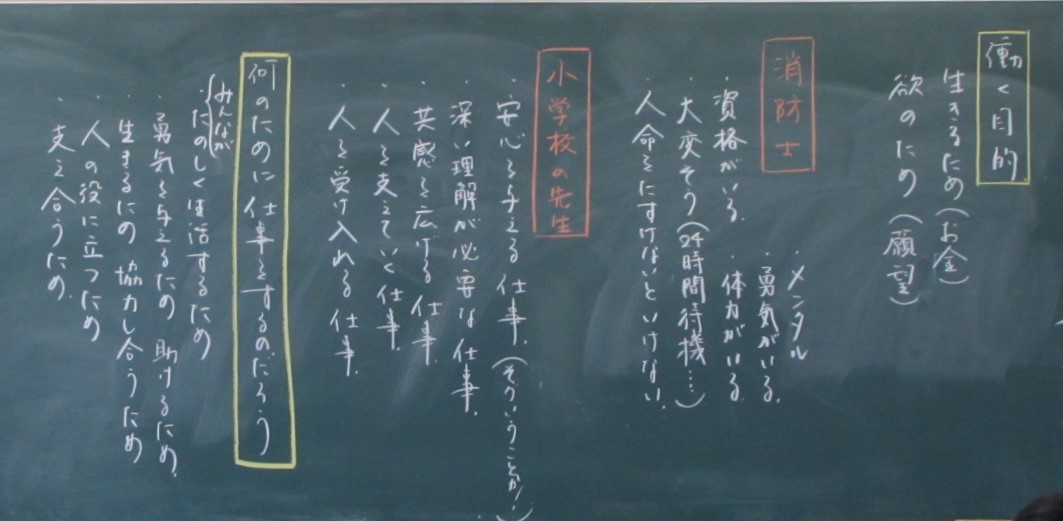 働く目的
生きるため(お金)
欲のため(願望)
消防士
・メンタル
・勇気がいる。
・資格がいる。・体力がいる。
・大変そう(24時間待機…)
・人命をたすけないといけない。
小学校の先生
・安心を与える仕事。(そういうことか!)
・深い理解が必要な仕事。
・共感を広げる仕事。
・人を支えていく仕事。
・人を受け入れる仕事。
何のために仕事をするのだろう
みんなが
・たのしく生活するため
・勇気を与えるため 助けるため。
・生きるため 協力し合うため
・人の役に立つため
・支え合うため。